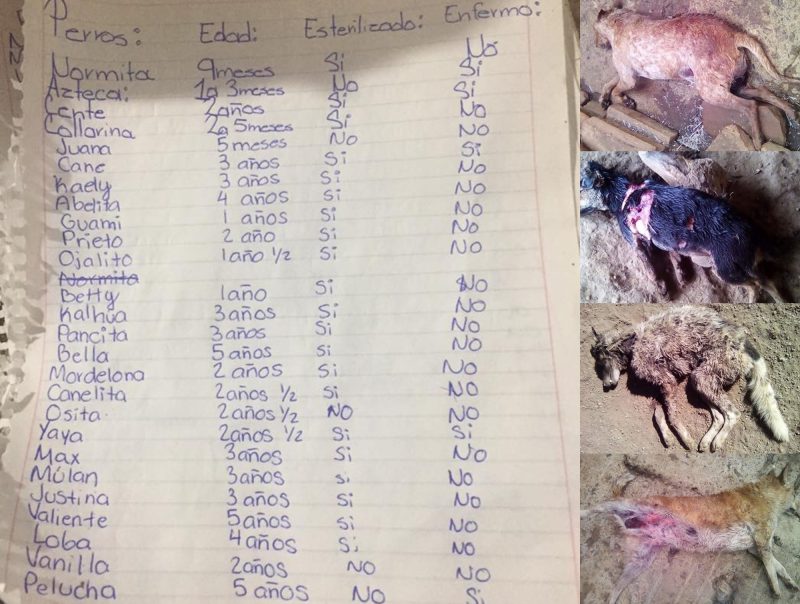 Perros: Edad: Esterilizado: Enfermo:
Normita 9meses Si No
Azteca: 1a 3meses No Si
2años Si Si
Collarina 2a 5meses Si No
Juana 5 meses No No
Cane 3 años Si Si
Kaely 3 años Si No
Abelita 4 años si No
Guami 1 años si No
Prieto 2 año Si No
Ojalito 1año 1/2 Si No
Normita
Betty 1año Si No
Kalhua 3años Si No
Pancita 3años Si No
Bella 5 años si No
Mordelona 2 años si No
Canelita 2años 1/2 Si No
Osita. 2años 1/2 NO NO
Yaya 2años 1/2 Si Si
Max 3años Si No
Múlan 3años si No
Justina 3 años si No
Valiente 5años si No
Loba 4 años Si No
Vanilla 2años NO NO
Pelucha 5 años NO Si